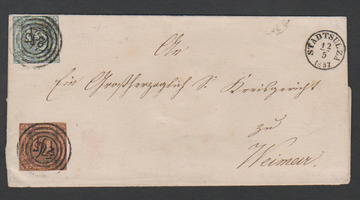 An
STADTSULZA
12
5
1857
Ein Großherzoglich S. Kreisgericht
zu
Weimar.